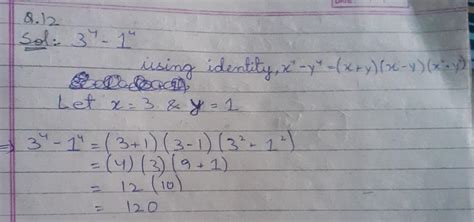 Q.12
Sol: 3⁴ - 1⁴
using identity, x⁴ - y⁴ = (x + y) (x - y) (x² + y²)
Let x = 3 & y = 1
⇒ 3⁴ - 1⁴ = (3+1) (3-1) (3² - 1²)
= (4) (3) (9 + 1)
= 12 (10)
= 120